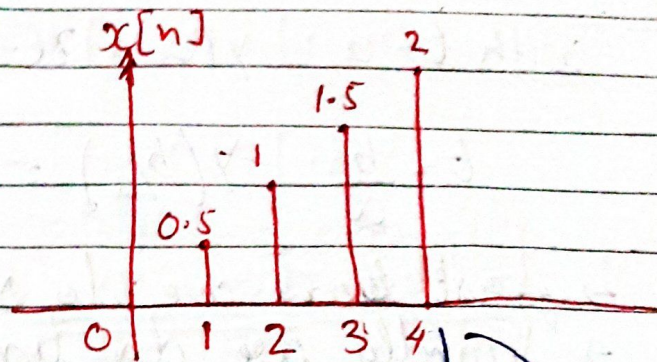 x[n]
2
1.5
1
0.5
0 1 2 3 4